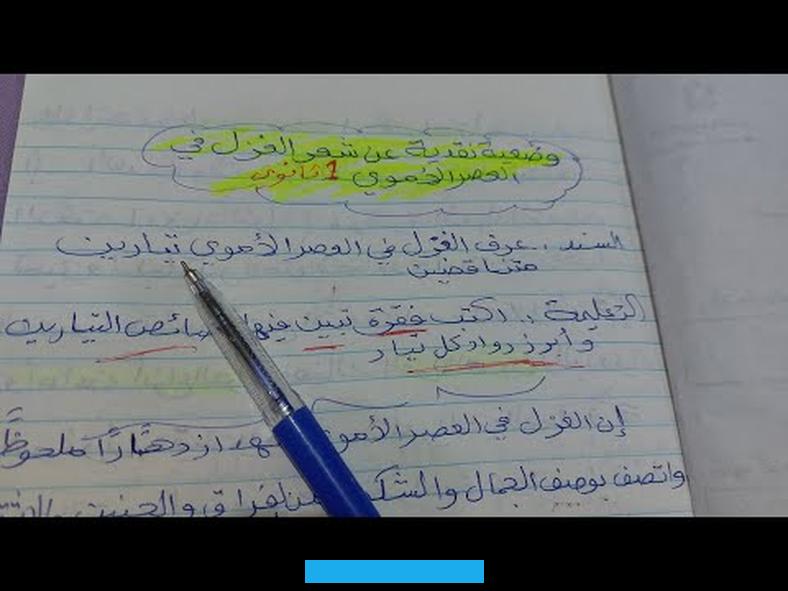 وضعية نقدية عن شعر الغزل في
العصر الأموي 1 ثانوي
السند: عرف الغزل في العصر الأموي تيارين
متناقضين
التعليمة: اكتب فقرة تبين فيها خصائص التيارين
وأبرز رواد كل تيار
إن الغزل في العصر الأموي شهد ازدهارًا ملحوظًا
واتصف بوصف الجمال والشكوى من الفراق والحنين